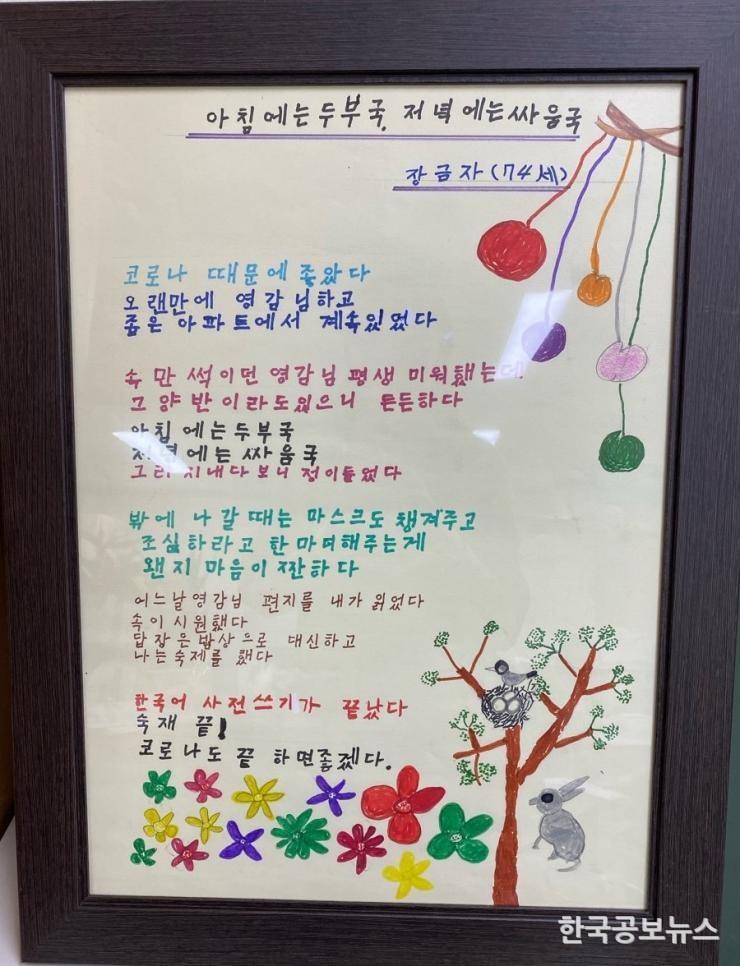 아침에는두부국, 저녁에는싸움국
장금자(74세)
코로나 때문에좋았다
오랜만에 영감님하고
좁은아파트에서 계속있었다
속만썩이던영감님평생미워했는데
그양반이라도있으니 든든하다
아침에는두부국
저녁에는싸움국
그리지내다보니정이들었다
밖에 나갈때는 마스크도챙겨주고
조심하라고 한마디해주는게
왠지마음이짠하다
어느날영감님 편지를 내가읽었다
속이시원했다
답장은밥상으로 대신하고
나는숙제를했다
한국어 사전쓰기가 끝났다
숙재 끝!
코로나도끝 하면좋겠다.
한국공보뉴스